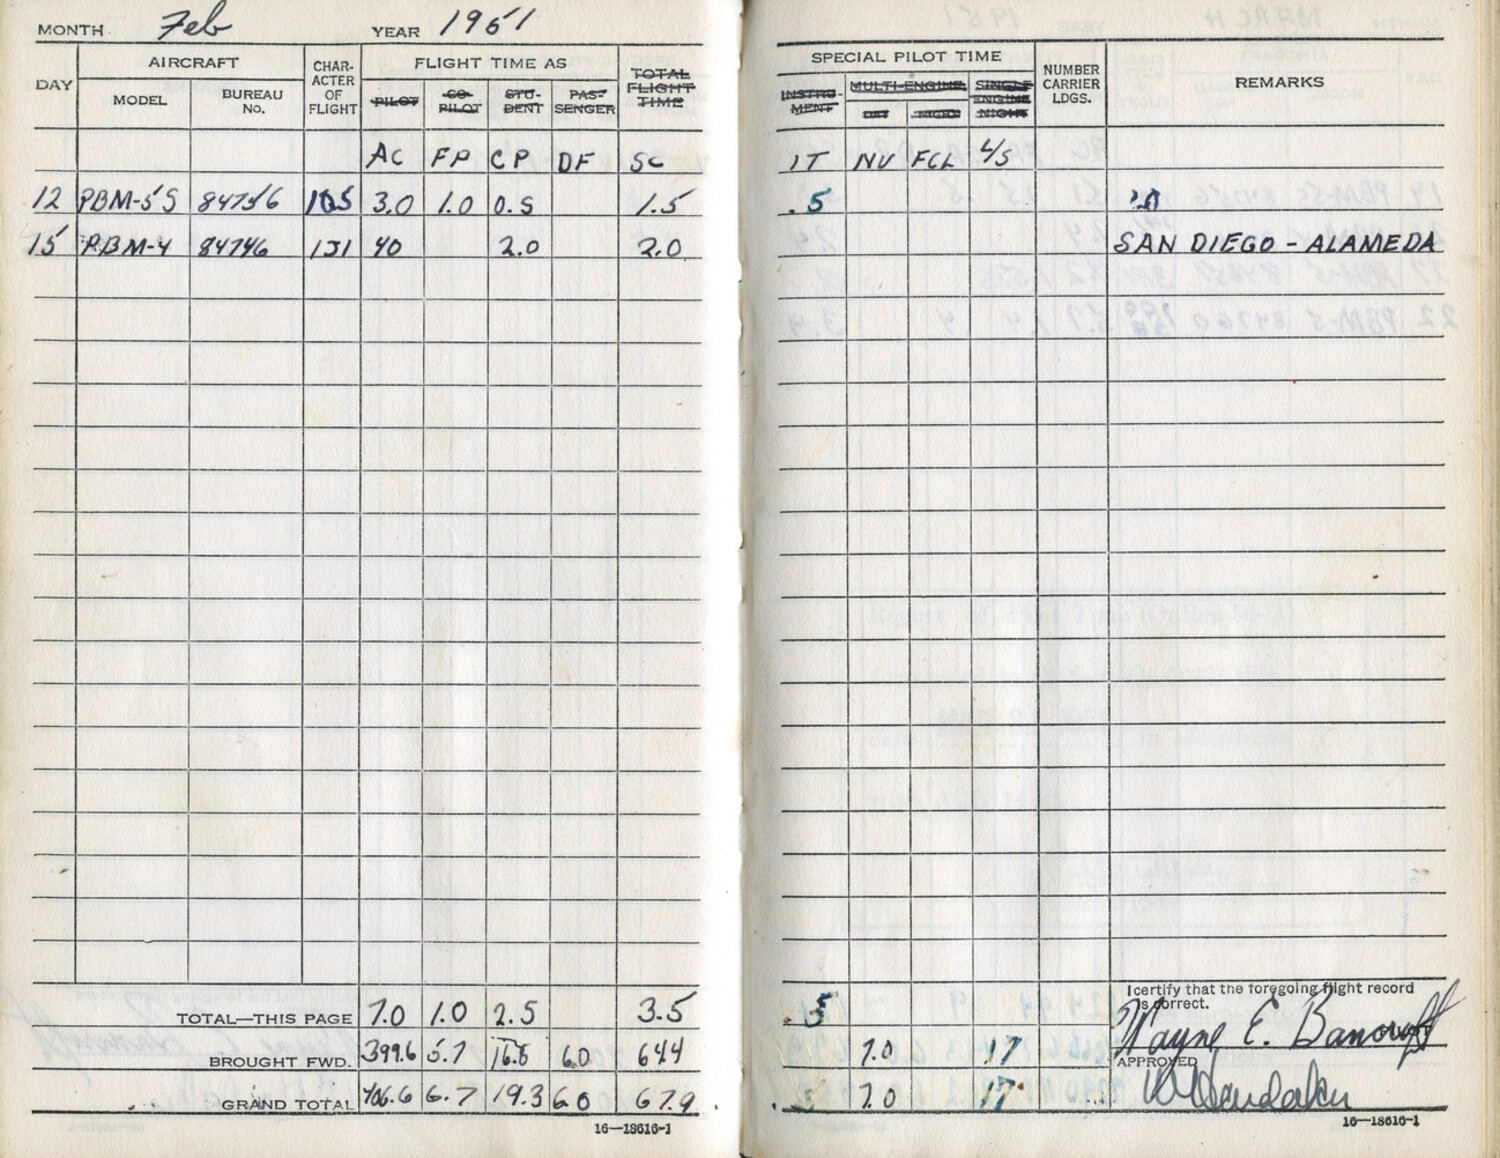 MONTH Feb YEAR 1951
DAY AIRCRAFT CHAR-ACTER OF FLIGHT FLIGHT TIME AS TOTAL FLIGHT TIME
MODEL BUREAU No. PILOT CO-PILOT STU-DENT PAS-SENGER
AC FP CP DF SC
12 PBM-5S 84756 1.0 0.5 1.5
15 PBM-4 84746 1J1 40 2.0 2.0
TOTAL—THIS PAGE 7.0 1.0 2.5 3.5
BROUGHT FWD. 399.6 5.7 16.8 60 64.4
GRAND TOTAL 406.6 6.7 19.3 60 67.9
16—18616-1
SPECIAL PILOT TIME NUMBER CARRIER LDGS. REMARKS
INSTRU-MENT MULTI-ENGINE SINGLE ENGINE NIGHT
DAY NIGHT
IT NV FCL 4/5
.5
SAN DIEGO - ALAMEDA
I certify that the foregoing flight record is correct.
.5 Wayne E. Bancroft
7.0 17 APPROVED
7.0 17
16—18616-1